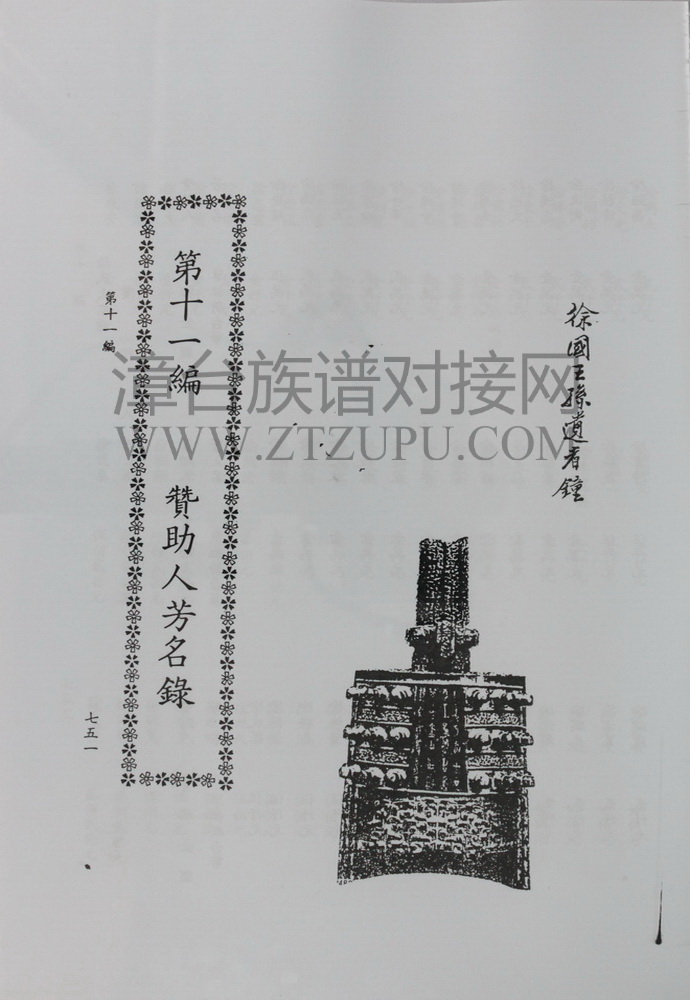 徐國王孫遺者鐘
第十一編　贊助人芳名錄
第十一編
七五一
漳台族谱对接网
WWW.ZTZUPU.COM